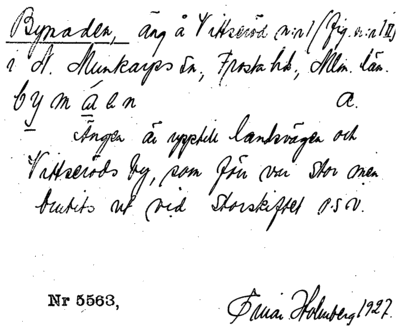 Bymaden, äng å Vittseröd n:r 1 (fig. n:r 1 II)
i N. Munkarps sn, Frosta hd, Mlm. län.
bymáen a.
Ängen är upptill landsvägen och
Vittseröds by, som förr var stor men
brutits ut vid storskiftet o.s.v.
Nr 5563, Einar Holmberg 1927.